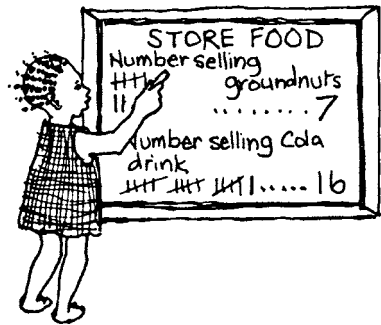 STORE FOOD
Number selling
groundnuts
||........7
Number selling Cola
drink
|||| |||| |||| |.....16